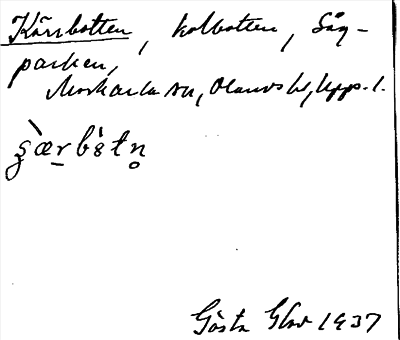 Kärrbotten, kolbotten, Såg-
parken,
Morkarla sn, Olands hd, Uppl.
ʂæ̀rbótn̥
Gösta Glav 1937